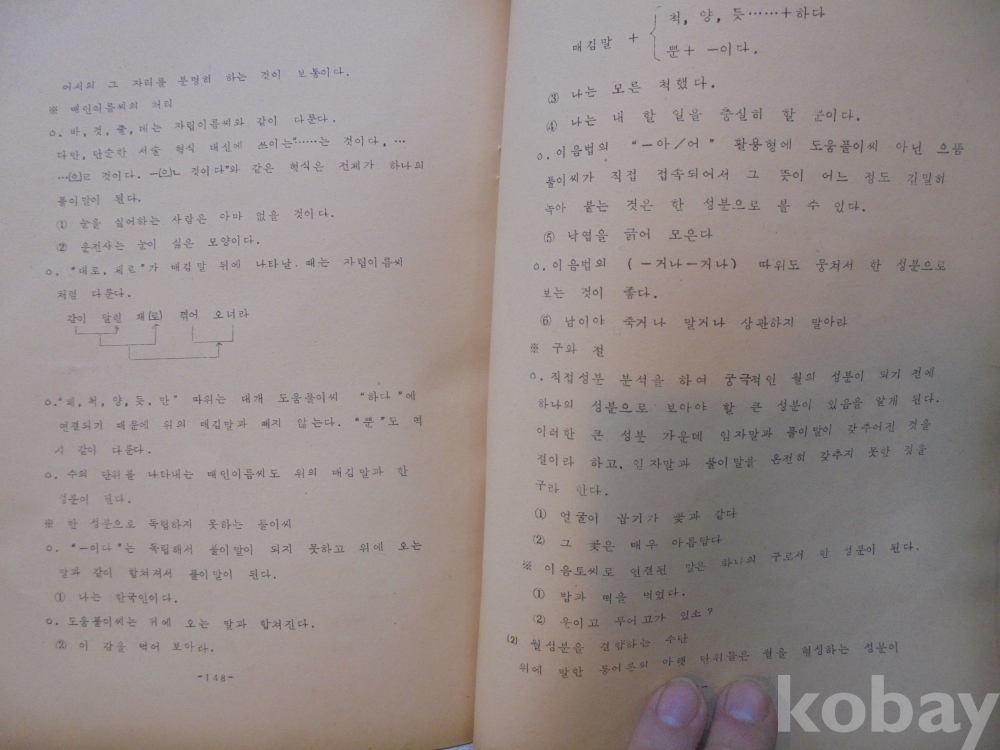 어서의 그 자리를 분명히 하는 것이 보통이다.
※ 매인이름씨의 처리
ㅇ. 바, 것, 줄, 데는 자립이름씨와 같이 다룬다.
다만, 단순한 서술 형식 대신에 쓰이는 "……는 것이다, …
…(으)ㄹ 것이다. -(으)ㄴ 것이다"와 같은 형식은 전체가 하나의
풀이말이 된다.
① 술을 싫어하는 사람은 아마 없을 것이다.
② 운전사는 눈이 싫은 모양이다.
ㅇ. "대로, 째로"가 매김말 뒤에 나타날 때는 자립이름씨
처럼 다룬다.
같이 달린 채(로) 꺾어 오너라
ㅇ. "체, 척, 양, 듯, 만" 따위는 대개 도움풀이씨 "하다"에
연결되기 때문에 위의 매김말과 떼지 않는다. "뿐"도 역
시 같이 다룬다.
ㅇ. 수의 단위를 나타내는 매인이름씨도 위의 매김말과 한
성분이 된다.
※ 한 성분으로 독립하지 못하는 풀이씨
ㅇ. "-이다"는 독립해서 풀이말이 되지 못하고 위에 오는
말과 같이 합쳐져서 풀이말이 된다.
① 나는 한국인이다.
ㅇ. 도움풀이씨는 위에 오는 말과 합쳐진다.
② 이 감을 먹어 보아라.
-148-
매김말 + { 척, 양, 듯……+하다
뿐+ -이다.
③ 나는 모른 척했다.
④ 나는 내 할 일을 충실히 할 뿐이다.
ㅇ. 이음법의 "-아/어" 활용형에 도움풀이씨 아닌 으뜸
풀이씨가 직접 접속되어서 그 뜻이 어느 정도 긴밀히
녹아 붙는 것은 한 성분으로 볼 수 있다.
⑤ 낙엽을 긁어 모은다
ㅇ. 이음법의 (-거나-거나) 따위도 뭉쳐서 한 성분으로
보는 것이 좋다.
⑥ 남이야 죽거나 말거나 상관하지 말아라
※ 구와 절
ㅇ. 직접성분 분석을 하여 궁극적인 월의 성분이 되기 전에
하나의 성분으로 보아야 할 큰 성분이 있음을 알게 된다.
이러한 큰 성분 가운데 임자말과 풀이말이 갖추어진 것을
절이라 하고, 임자말과 풀이말을 온전히 갖추지 못한 것을
구라 한다.
① 얼굴이 곱기가 꽃과 같다
② 그 꽃은 매우 아름답다
※ 이음토씨로 연결된 말은 하나의 구로서 한 성분이 된다.
① 밥과 떡을 먹었다.
② 옷이고 무어고가 있소?
(2) 월성분을 결합하는 수단
위에 말한 통어론의 아랫 단위들은 월을 형성하는 성분이
kobay